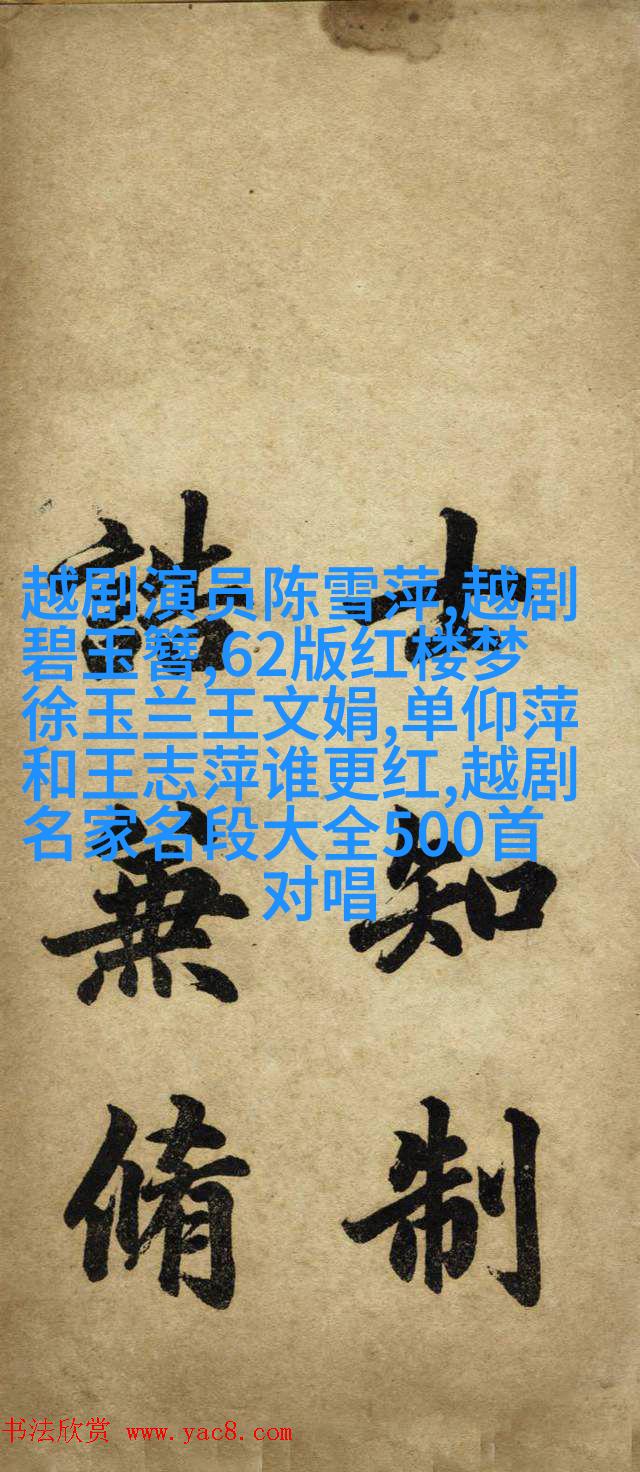 越剧演员陈雪萍,越剧
碧玉簪,62版红楼梦
徐玉兰王文娟,单仰萍
和王志萍谁更红,越剧
名家名段大全500首
对唱
士知制
誥兼脩
书法欣赏 www.yac8.com